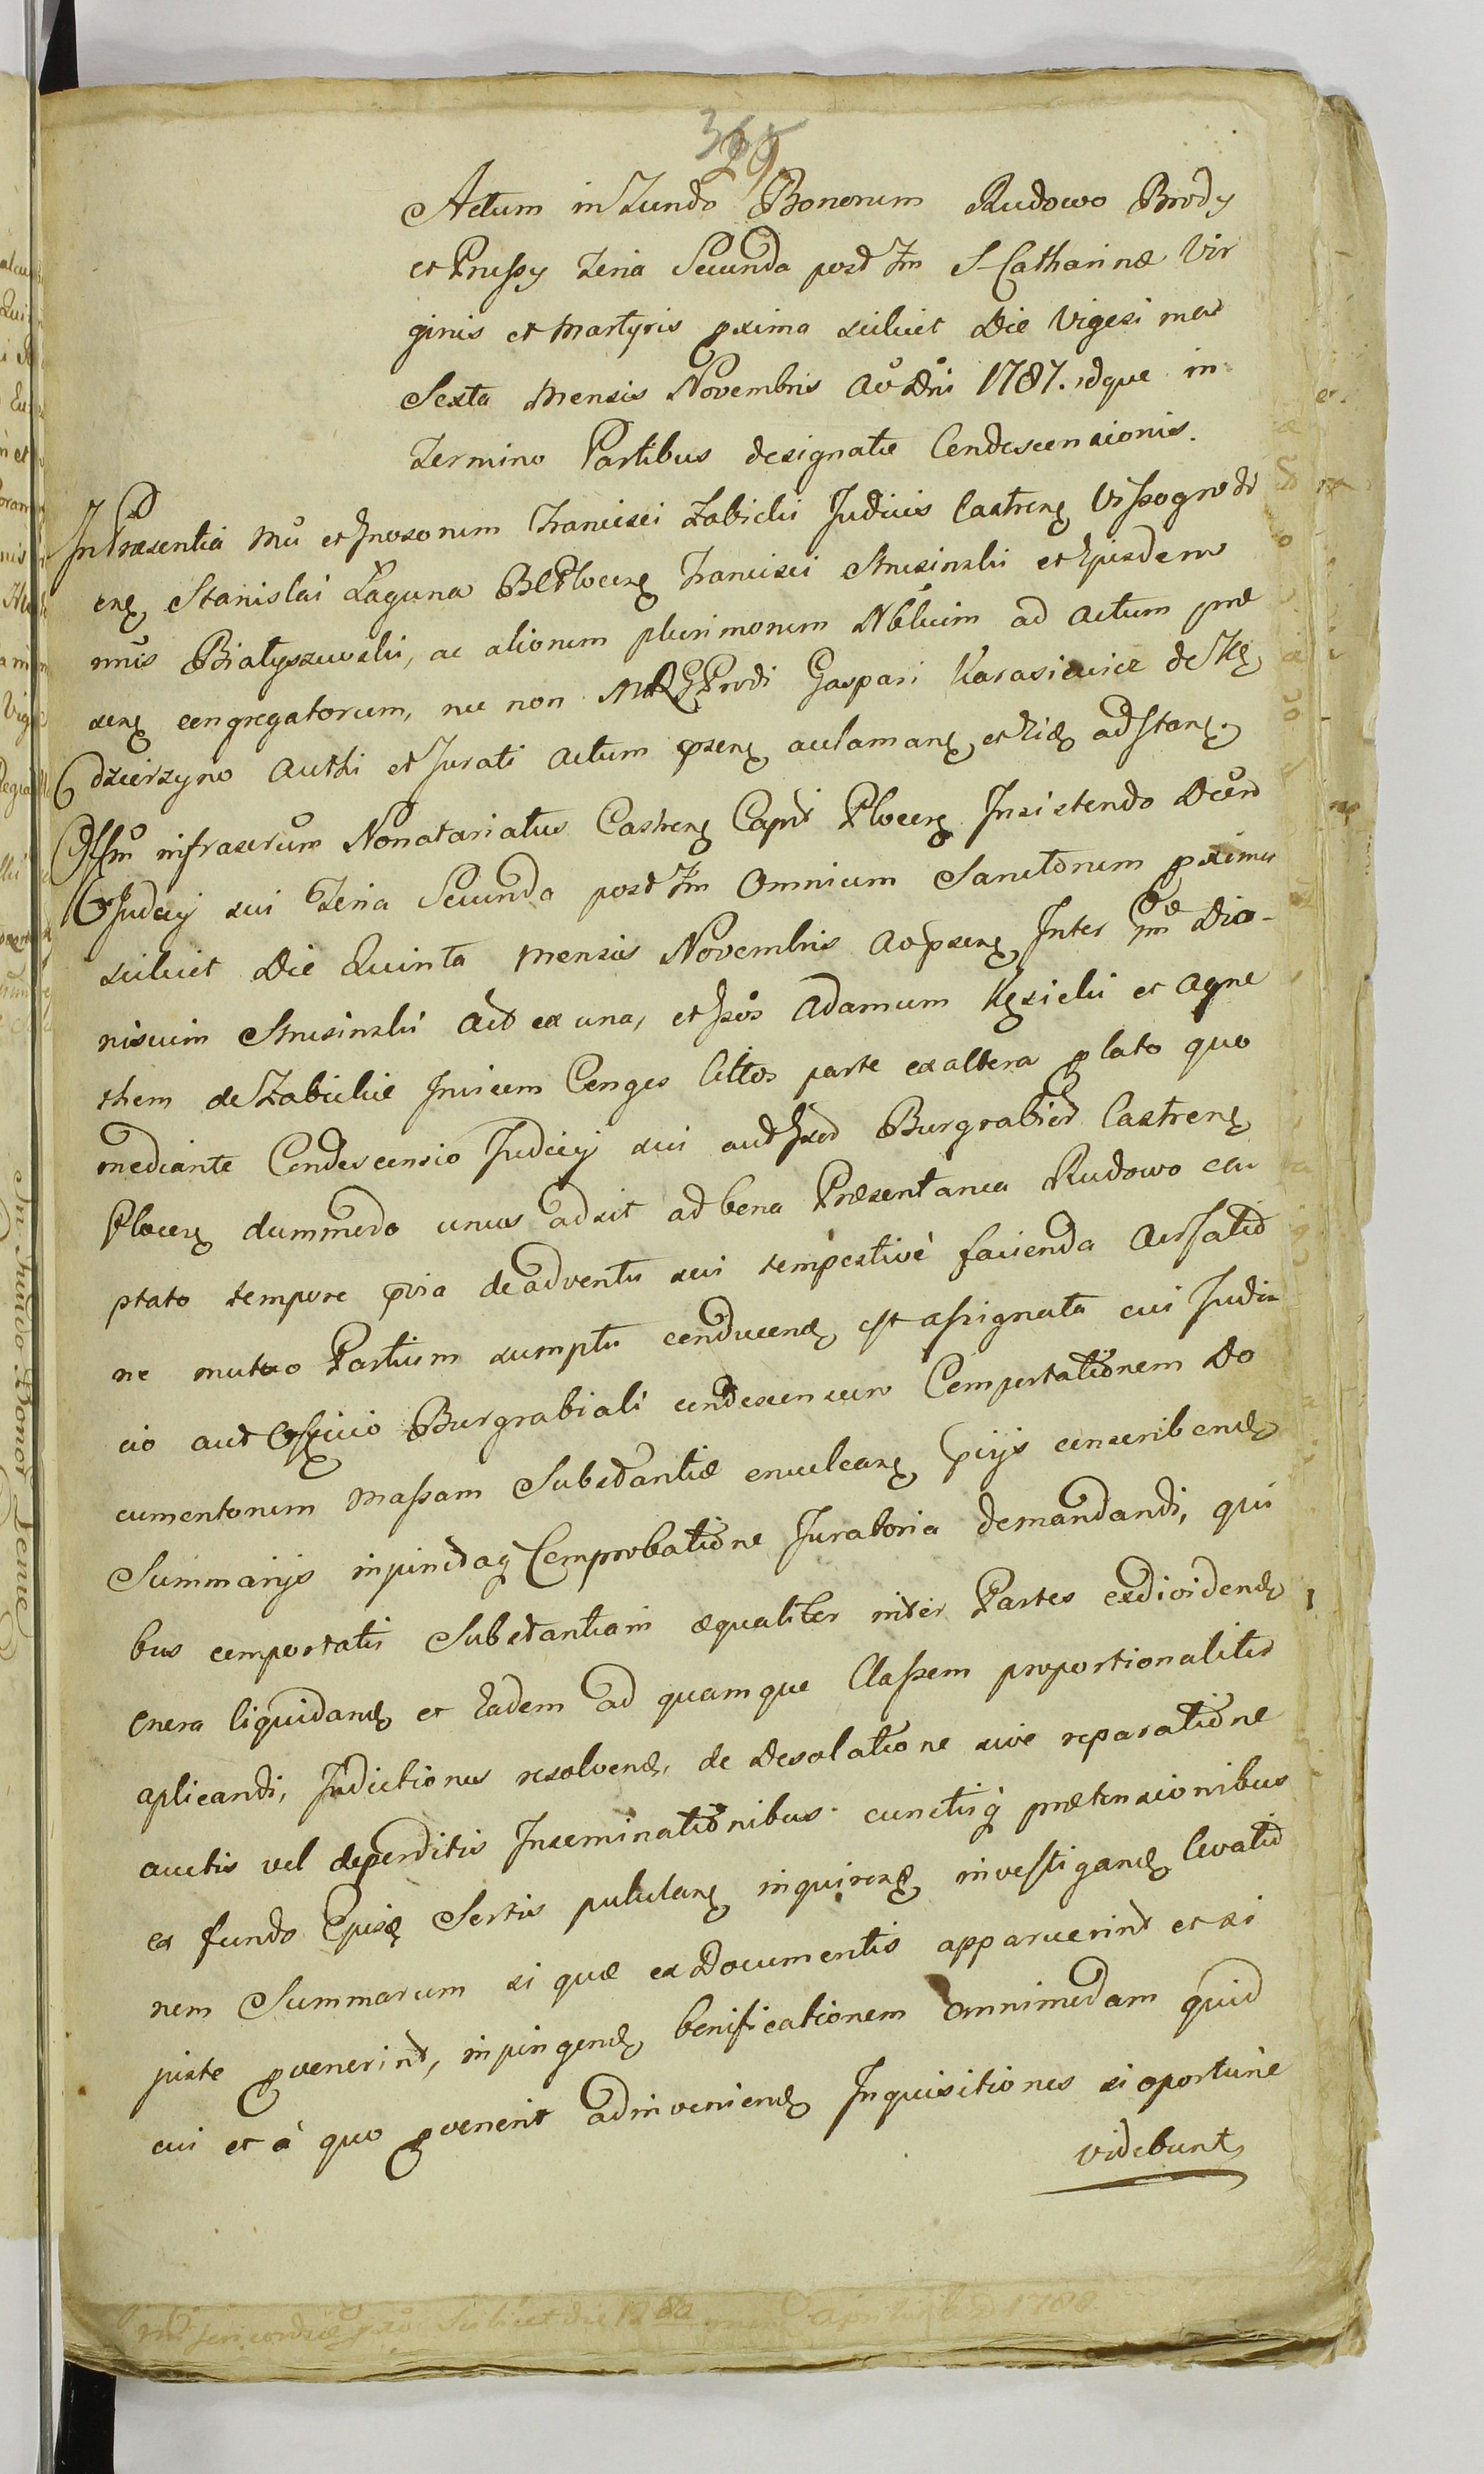 365
29.
Actum in Fundo Bonorum Rudowo Brody
et Prussy Feria Secunda post Fm S. Catharinæ Vir
ginis et Martyris pxima scilicet Die Vigesi ma
Sexta Mensis Novembris Ao Dni 1787. idque in
Termino Partibus designatæ Condescensionis.
In Præsentia Mci et Gnosorum Francisci Zabicki Judicis Castren Vissogrodi
en Stanislai Łaguna BC Plocen Francisci Strusinski et Ejusdem
nnis Białyszewski, ac aliorum plurimorum Nbluim ad Actum præ
sen congregatorum, nec non MRGProdi Gaspari Karasiewicz de Kę
dzierzyno Authi et Jurati Actum psen aclaman et Ziæ adstan.
Offm infrascrum Nonatariatus Castren Capit Plocen Insistendo Decro
Judicij sui Feria Secunda post Fm Omnium Sanctorum pxima
scilicet Die Quinta Mensis Novembris Ao psen Inter Dio-
nisium Strusinski Act ex una, et Gsos Adamum Kęsicki et Agne
them de Zabickie Invicem Conges Cittos parte ex altera p lato quo
mediante Condescensio Judicij sui aut Burgrabior Castren
Plocen dummodo unus adsit ad bona Præsentanea Rudowo ca
ptato tempore pvia de adventu sui tempestivè facienda Acrsatio
ne mutuo Partium sumptu conducend est assignata cui Judi-
cio aut Officio Burgrabiali condescensuro Comportationem Do
cumentorum Massam Substantiæ enuclean conscribend
Summarijs injunctaq Comprobatione Juratoria demandandi, qui
bus comportatis Substantiam æqualiter inter Partes exdividend
Onera liquidand et Eadem ad quamque Classem proportionaliter
aplicandi, Indictiones resolvend, de Desolatione sive reparatione
auctis vel deperditis Inseminationibus cunctisq prætensionibus
ex fundo Ejusd Sortis pululan inquirend investigand levatio
nem Summarum si quæ ex Documentis apparuerint et si
juste pvenerint, inpingend, bonificationem omnimodam quid
cui et à quo pvenerit adinveniend Inquisitiones si oportune
videbunt